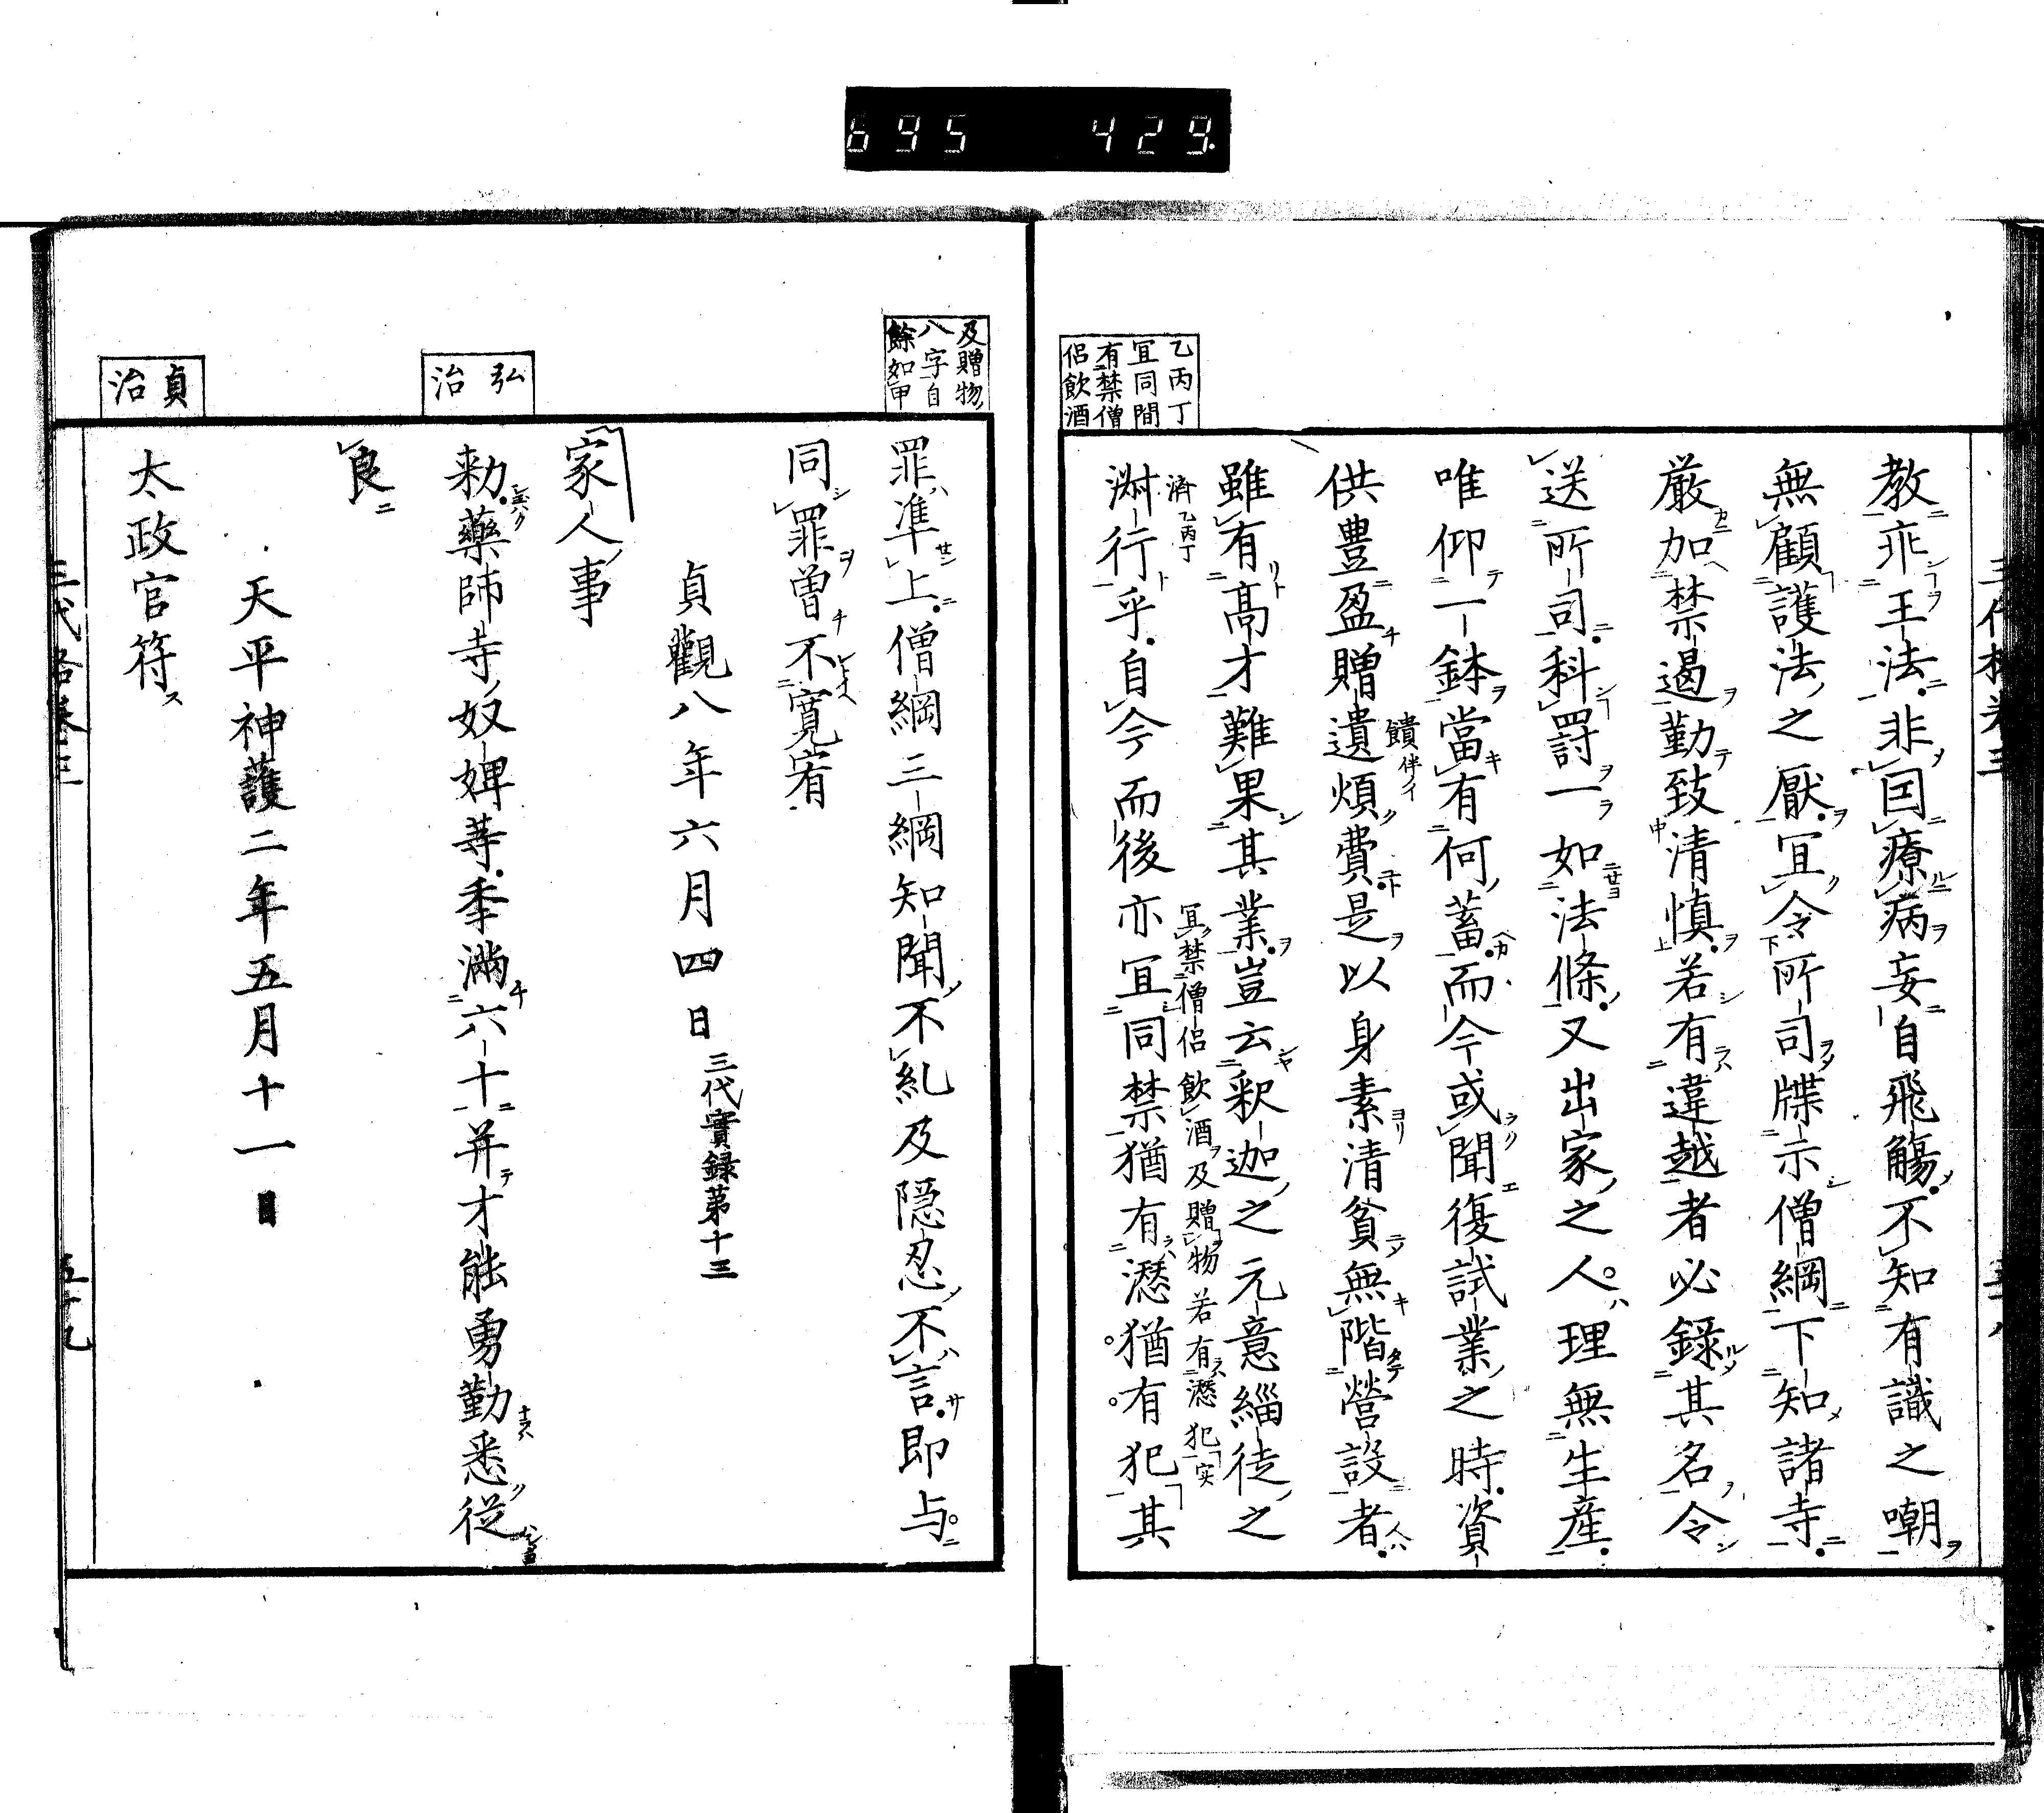 695 429.
乙丙丁
冝同間
有禁僧
侶飲酒
教乖王法非因療病妄自飛觴不知有識之嘲
無顧護法之厭冝令所司牒示僧綱下知諸寺
厳加禁遏勤致清慎若有違越者必録其名令
送所司科罸一如法條又出家之人理無生産
唯仰一鉢當有何蓄而今或聞復試業之時資
供豊盈贈遺煩費是以身素清貧無階營設者
饋伴イ
雖有髙才難果其業豈云釈迦之元意緇徒之
済乙丙丁
冝禁僧侶飲酒及贈物若有𠎝犯実
行乎自今而後亦冝同禁猶有𠎝猶有犯其
及贈物
八字自
餘如甲
罪准上僧綱三綱知聞不糺及隠忍不言即与
同罪曽不寛宥
貞觀八年六月四日三代實録苐十三
家人事
弘治
勅藥師寺奴婢等秊滿六十并才能勇勤悉従
良
天平神護二年五月十一日
貞治
太政官符